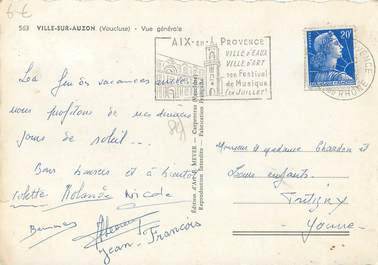 6€
563 VILLE-SUR-AUZON (Vaucluse) - Vue générale
AIX-EN-PROVENCE
VILLE D'EAUX
VILLE D'ART
son Festival
de Musique
(EN JUILLET)
20F
RHONE
La fin des vacances
nous profitons de nos derniers
jours de soleil...
Bons baisers et à bientôt
Colette Rolande Nicole
Jean-François
Edition d'Art MEYER - Carpentras
Reproduction Interdite - Fabrication Française
Monsieur et madame Chardon et
Leurs enfants.
Yonne